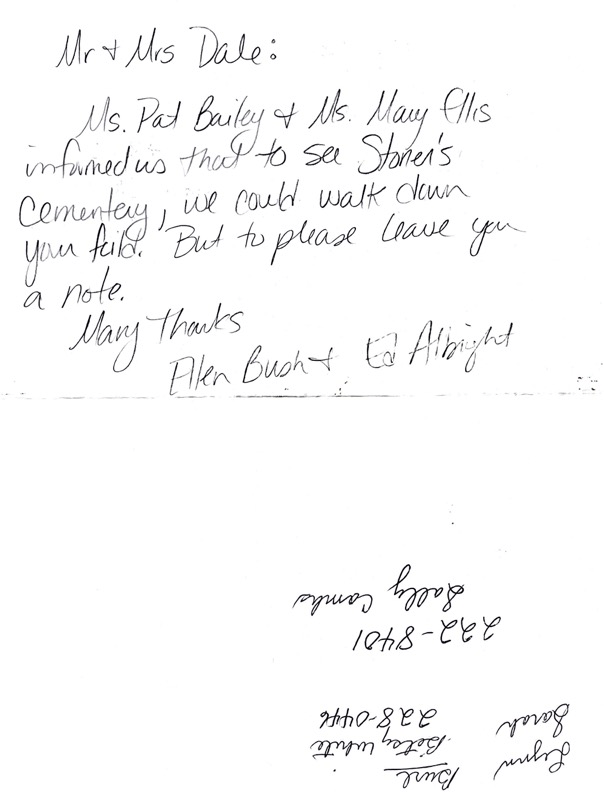 Mr + Mrs Dale:
Ms. Pat Bailey + Ms. Mary Ellis
informed us that to see Stoner's
Cementery, we could walk down
your feild. But to please leave you
a note.
Many Thanks
Ellen Bush + Ed Albright
Lynn
Sarah
Burl
Betsy White
228-0446
222-8401
Sally Combs